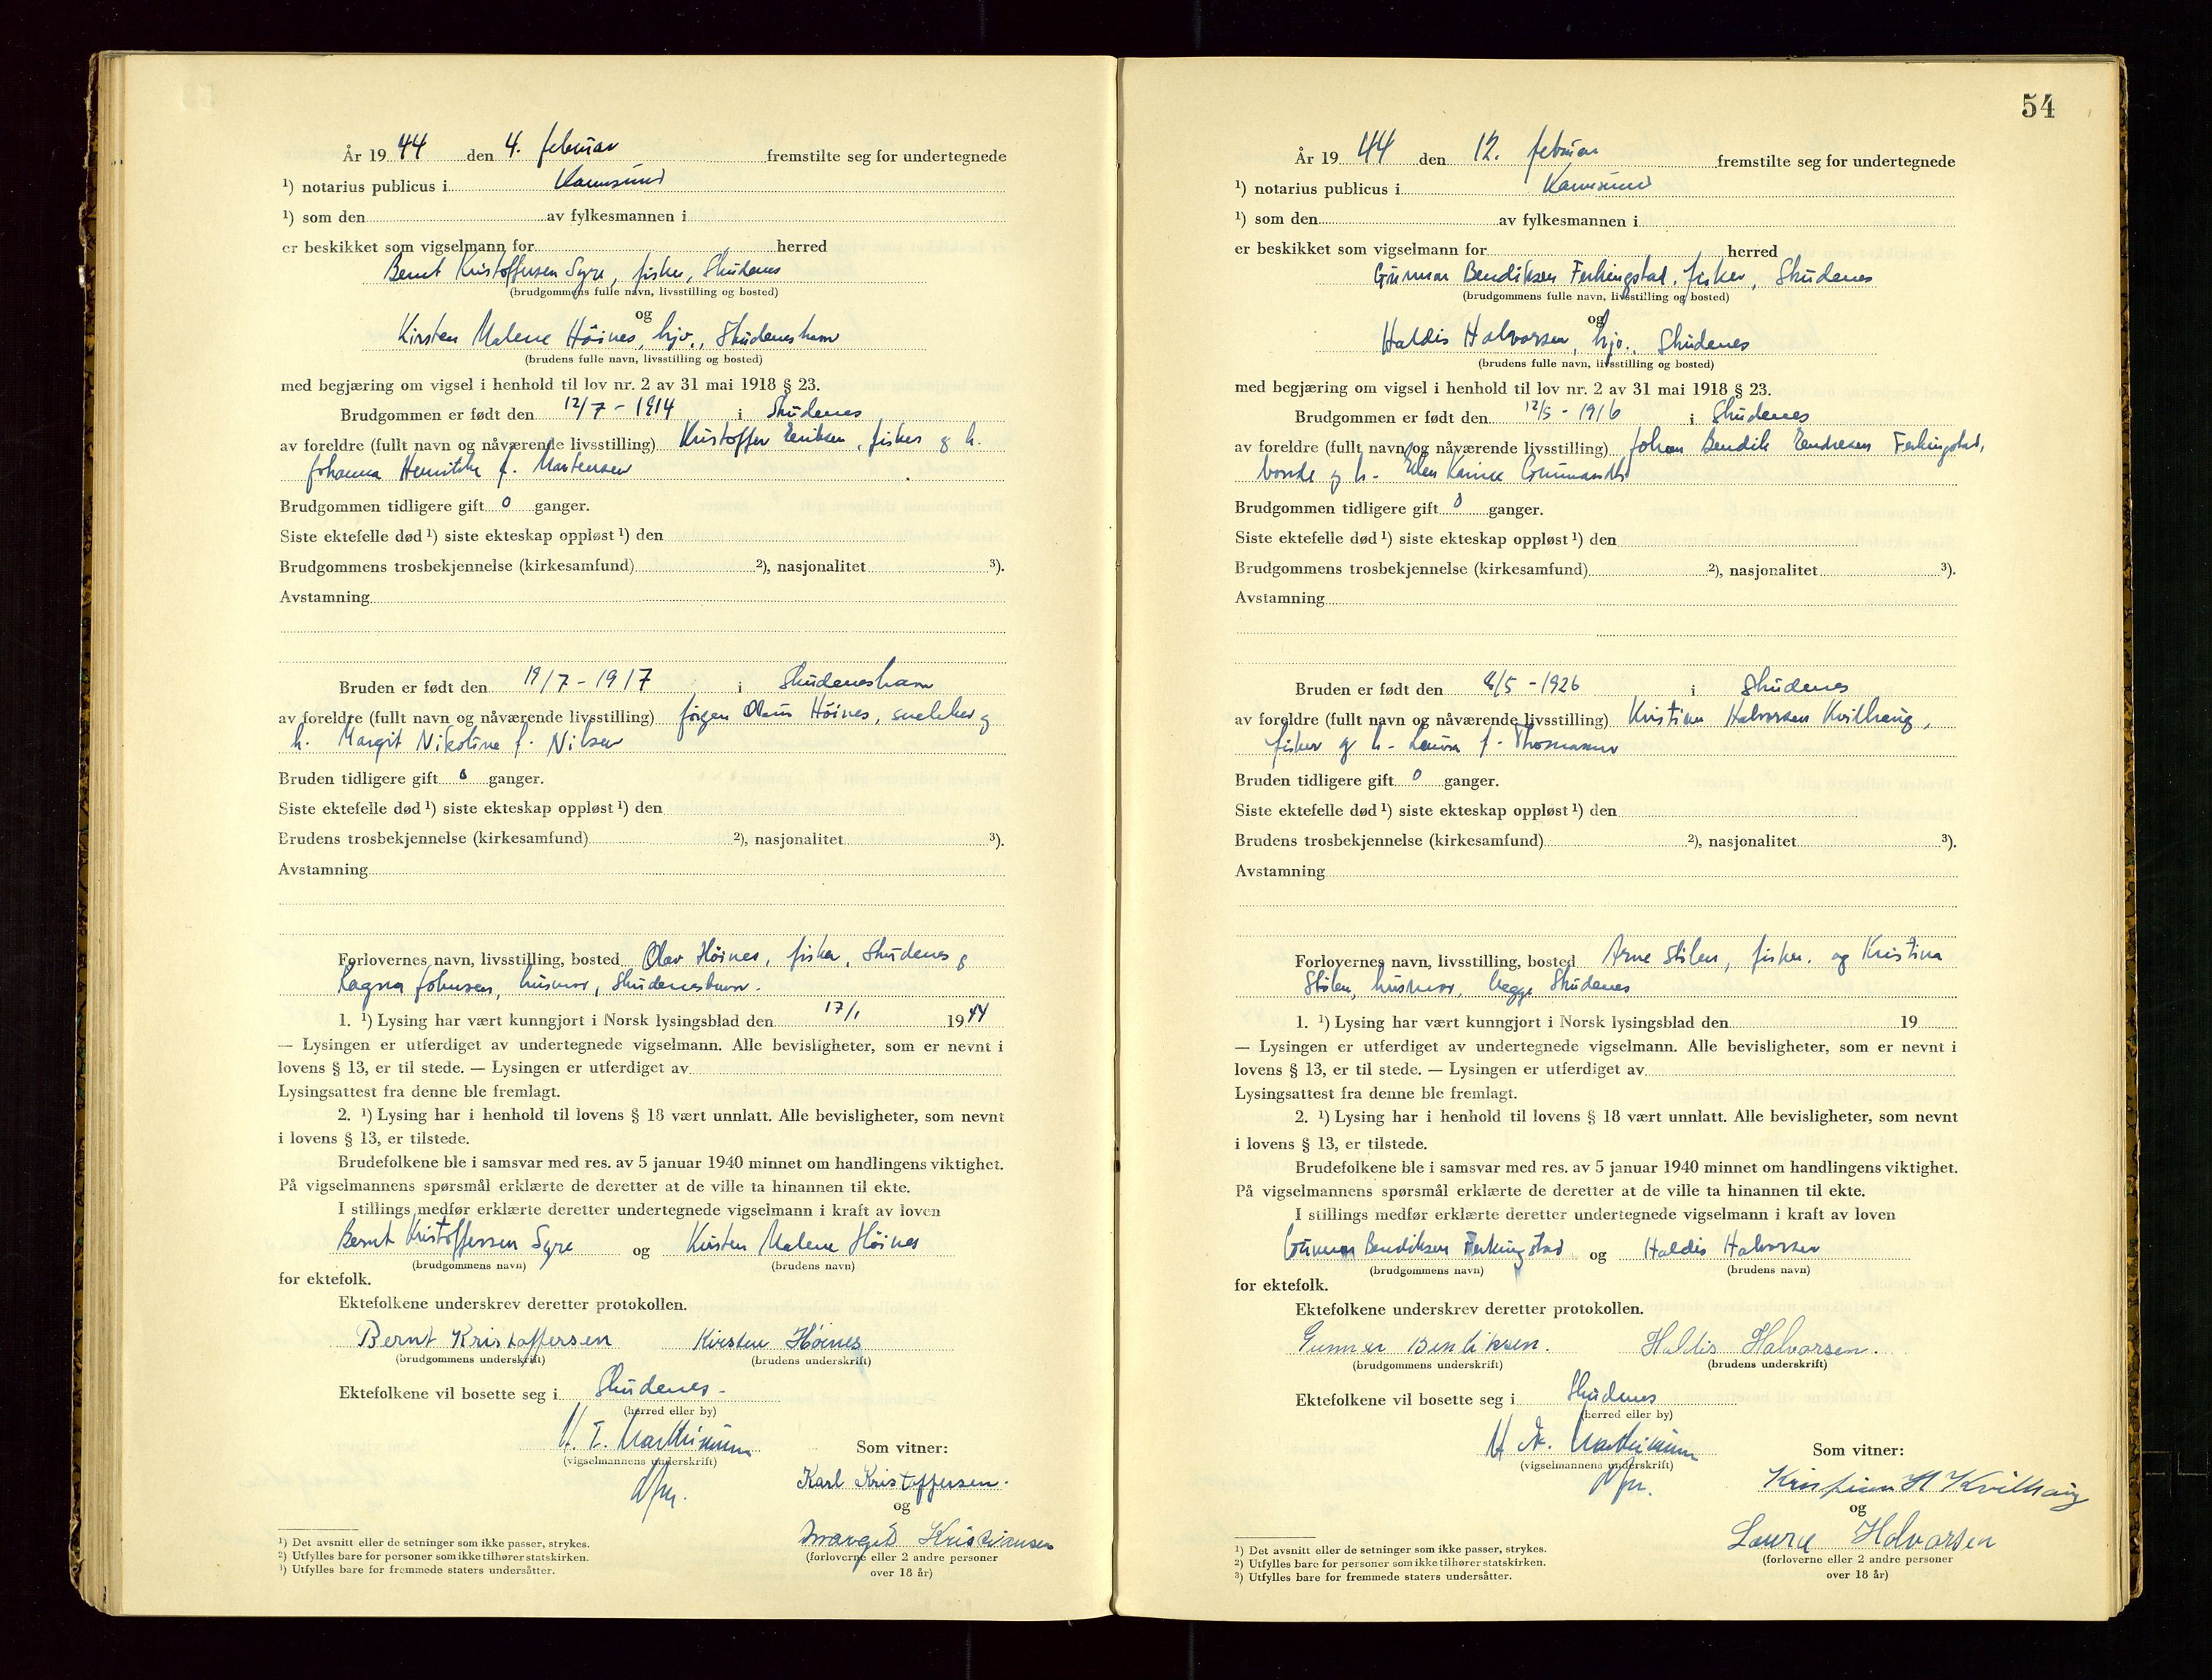 År 19 44 den 4. februar fremstilte seg for undertegnede
¹) notarius publicus i Karmsund
¹) som den av fylkesmannen i
er beskikket som vigselmann for herred
Bernt Kristoffersen Syre, fisker, Skudenes
(brudgommens fulle navn, livsstilling og bosted)
og
Kirsten Malene Höines, hjv., Skudeneshavn
(brudens fulle navn, livsstilling og bosted)
med begjæring om vigsel i henhold til lov nr. 2 av 31 mai 1918 § 23.
Brudgommen er født den 12/7 - 1914 i Skudenes
av foreldre (fullt navn og nåværende livsstilling) Kristoffer Eriksen, fisker g h.
Johanna f. Martensen
Brudgommen tidligere gift 0 ganger.
Siste ektefelle død ¹) siste ekteskap oppløst ¹) den
Brudgommens trosbekjennelse (kirkesamfund) ²), nasjonalitet ³).
Avstamning
Bruden er født den 19/7 - 1917 i Skudeneshavn
av foreldre (fullt navn og nåværende livsstilling) Jörgen Olaus Höines, snekker g
h. Margit Nikoline f. Nilsen
Bruden tidligere gift 0 ganger.
Siste ektefelle død ¹) siste ekteskap oppløst ¹) den
Brudens trosbekjennelse (kirkesamfund) ²), nasjonalitet ³).
Avstamning
Forlovernes navn, livsstilling, bosted Olav Höines, fisker, Skudenes g
Ragna Johnsen, husmor, Skudeneshavn.
1. ¹) Lysing har vært kunngjort i Norsk lysingsblad den 17/1 19 44
— Lysingen er utferdiget av undertegnede vigselmann. Alle bevisligheter, som er nevnt i
lovens § 13, er til stede. — Lysingen er utferdiget av
Lysingsattest fra denne ble fremlagt.
2. ¹) Lysing har i henhold til lovens § 18 vært unnlatt. Alle bevisligheter, som nevnt
i lovens § 13, er tilstede.
Brudefolkene ble i samsvar med res. av 5 januar 1940 minnet om handlingens viktighet.
På vigselmannens spørsmål erklærte de deretter at de ville ta hinannen til ekte.
I stillings medfør erklærte deretter undertegnede vigselmann i kraft av loven
Bernt Kristoffersen Syre og Kirsten Malene Höines
(brudgommens navn) (brudens navn)
for ektefolk.
Ektefolkene underskrev deretter protokollen.
Bernt Kristoffersen Kirsten Höines
(brudgommens underskrift) (brudens underskrift)
Ektefolkene vil bosette seg i Skudenes.
(herred eller by)
(vigselmannens underskrift)
Som vitner:
Karl Kristoffersen.
og
Margit Kristiansen
(forloverne eller 2 andre personer
over 18 år)
¹) Det avsnitt eller de setninger som ikke passer, strykes.
²) Utfylles bare for personer som ikke tilhører statskirken.
¹) Utfylles bare for fremmede staters undersåtter.
54
År 19 44 den 12. februar fremstilte seg for undertegnede
¹) notarius publicus i Karmsund
¹) som den av fylkesmannen i
er beskikket som vigselmann for herred
Gunnar Bendiksen Ferkingstad, fisker, Skudenes
(brudgommens fulle navn, livsstilling og bosted)
og
Haldis Halvorsen, hjv., Skudenes
(brudens fulle navn, livsstilling og bosted)
med begjæring om vigsel i henhold til lov nr. 2 av 31 mai 1918 § 23.
Brudgommen er født den 12/5 - 1916 i Skudenes
av foreldre (fullt navn og nåværende livsstilling) Johan Bendik Endresen Ferkingstad,
bonde g h.
Brudgommen tidligere gift 0 ganger.
Siste ektefelle død ¹) siste ekteskap oppløst ¹) den
Brudgommens trosbekjennelse (kirkesamfund) ²), nasjonalitet ³).
Avstamning
Bruden er født den 8/5 - 1926 i Skudenes
av foreldre (fullt navn og nåværende livsstilling) Kristian Halvorsen Kvilhaug,
fisker g h. Laura f. Thomassen
Bruden tidligere gift 0 ganger.
Siste ektefelle død ¹) siste ekteskap oppløst ¹) den
Brudens trosbekjennelse (kirkesamfund) ²), nasjonalitet ³).
Avstamning
Forlovernes navn, livsstilling, bosted Arne Stölen, fisker, og Kristina
Stölen, husmor, begge Skudenes
1. ¹) Lysing har vært kunngjort i Norsk lysingsblad den 19
— Lysingen er utferdiget av undertegnede vigselmann. Alle bevisligheter, som er nevnt i
lovens § 13, er til stede. — Lysingen er utferdiget av
Lysingsattest fra denne ble fremlagt.
2. ¹) Lysing har i henhold til lovens § 18 vært unnlatt. Alle bevisligheter, som nevnt
i lovens § 13, er tilstede.
Brudefolkene ble i samsvar med res. av 5 januar 1940 minnet om handlingens viktighet.
På vigselmannens spørsmål erklærte de deretter at de ville ta hinannen til ekte.
I stillings medfør erklærte deretter undertegnede vigselmann i kraft av loven
Gunnar Bendiksen Ferkingstad og Haldis Halvorsen
(brudgommens navn) (brudens navn)
for ektefolk.
Ektefolkene underskrev deretter protokollen.
Gunnar Bendiksen. Haldis Halvorsen.
(brudgommens underskrift) (brudens underskrift)
Ektefolkene vil bosette seg i Skudenes
(herred eller by)
(vigselmannens underskrift)
Som vitner:
Kristian H Kvilhaug
og
Laura Halvorsen
(forloverne eller 2 andre personer
over 18 år)
¹) Det avsnitt eller de setninger som ikke passer, strykes.
²) Utfylles bare for personer som ikke tilhører statskirken.
³) Utfylles bare for fremmede staters undersåtter.